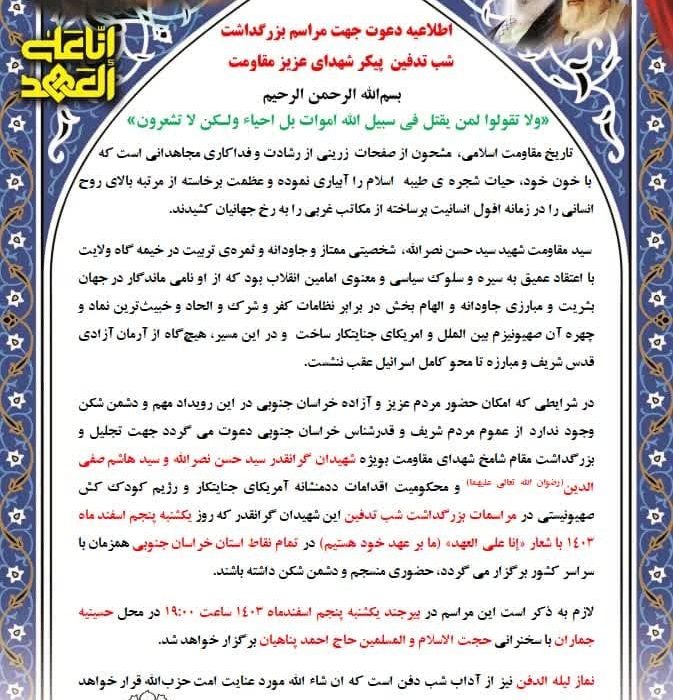 إنا علی
العهد
اطلاعیه دعوت جهت مراسم بزرگداشت
شب تدفین پیکر شهدای عزیز مقاومت
بسم‌الله الرحمن الرحیم
«ولا تقولوا لمن یقتل فی سبیل الله اموات بل احیاء ولکن لا تشعرون»
تاریخ مقاومت اسلامی، مشحون از صفحات زرینی از رشادت و فداکاری مجاهدانی است که
با خون خود، حیات شجره ی طیبه اسلام را آبیاری نموده و عظمت برخاسته از مرتبه بالای روح
انسانی را در زمانه افول انسانیت برساخته از مکاتب غربی را به رخ جهانیان کشیدند.
سید مقاومت شهید سید حسن نصرالله، شخصیتی ممتاز و جاودانه و ثمره‌ی تربیت در خیمه گاه ولایت
با اعتقاد عمیق به سیره و سلوک سیاسی و معنوی امامین انقلاب بود که از او نامی ماندگار در جهان
بشریت و مبارزی جاودانه و الهام بخش در برابر نظامات کفر و شرک و الحاد و خبیث‌ترین نماد و
چهره آن صهیونیزم بین الملل و امریکای جنایتکار ساخت و در این مسیر، هیچ‌گاه از آرمان آزادی
قدس شریف و مبارزه تا محو کامل اسرائیل عقب ننشست.
در شرایطی که امکان حضور مردم عزیز و آزاده خراسان جنوبی در این رویداد مهم و دشمن شکن
وجود ندارد از عموم مردم شریف و قدرشناس خراسان جنوبی دعوت می گردد جهت تجلیل و
بزرگداشت مقام شامخ شهدای مقاومت بویژه شهیدان گرانقدر سید حسن نصرالله و سید هاشم صفی
الدین(رضوان الله تعالی علیهما) و محکومیت اقدامات ددمنشانه آمریکای جنایتکار و رژیم کودک کش
صهیونیستی در مراسمات بزرگداشت شب تدفین این شهیدان گرانقدر که روز یکشنبه پنجم اسفند ماه
۱۴۰۳ با شعار «إنا علی العهد» (ما بر عهد خود هستیم) در تمام نقاط استان خراسان جنوبی همزمان با
سراسر کشور برگزار می گردد، حضوری منسجم و دشمن شکن داشته باشند.
لازم به ذکر است این مراسم در بیرجند یکشنبه پنجم اسفندماه ۱۴۰۳ ساعت ۱۹:۰۰ در محل حسینیه
جماران با سخنرانی حجت الاسلام و المسلمین حاج احمد پناهیان برگزار خواهد شد.
نماز لیله الدفن نیز از آداب شب دفن است که ان شاء الله مورد عنایت امت حزب‌الله قرار خواهد